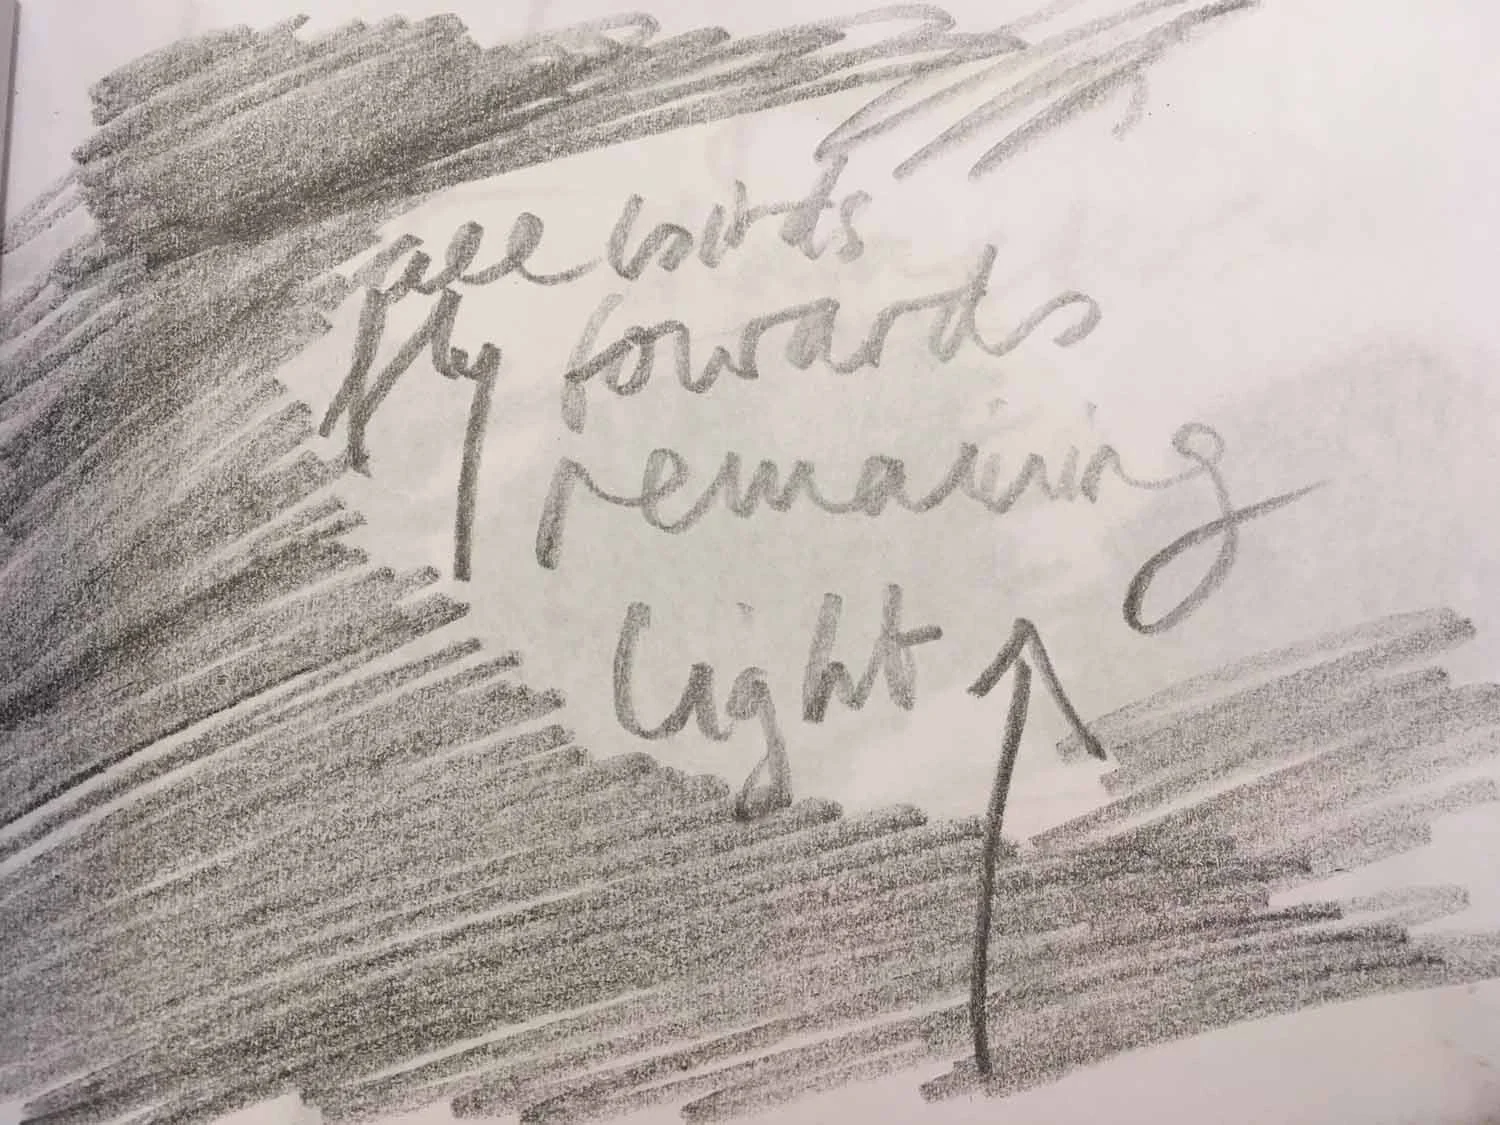 all birds
fly towards
remaining
light